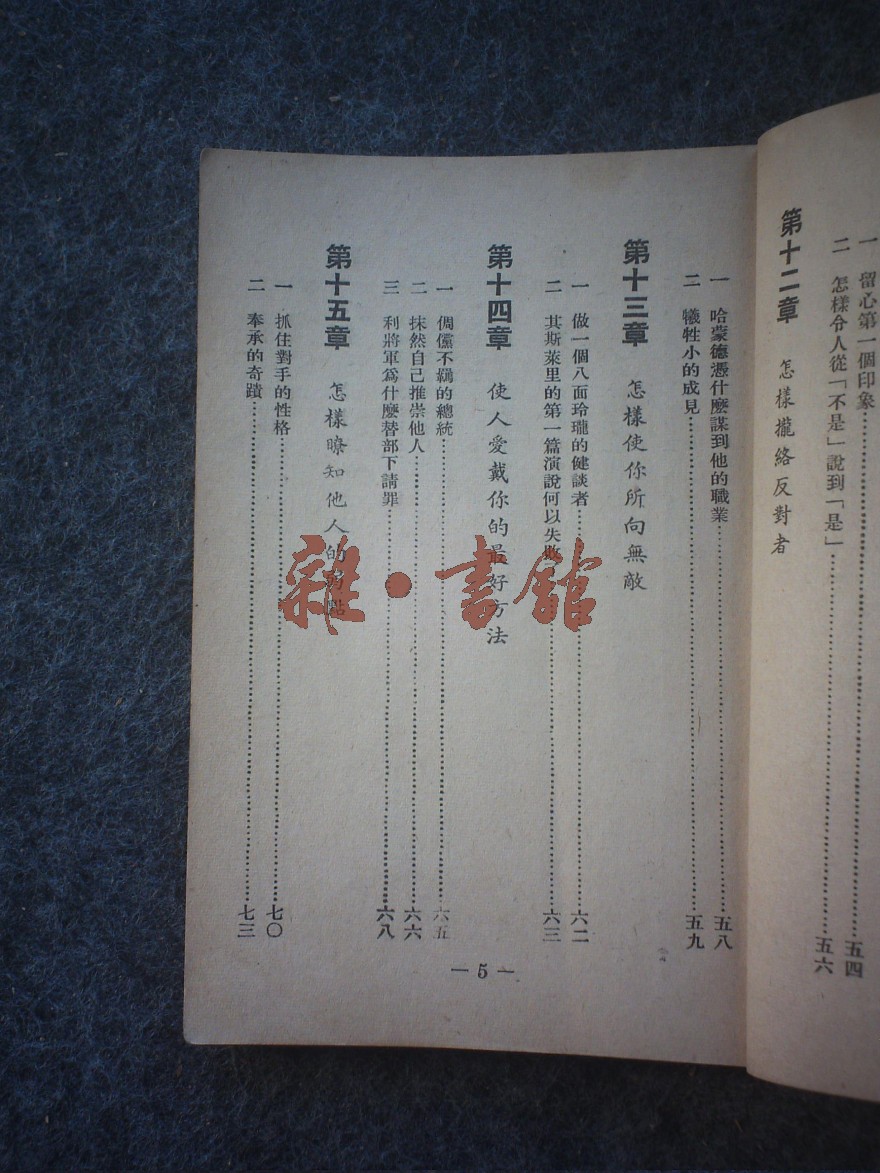 一　留心第一個印象……五四
二　怎樣令人從「不是」說到「是」……五六
第十二章　怎樣攏絡反對者
一　哈蒙德憑什麼謀到他的職業……五八
二　犧牲小的成見……五九
第十三章　怎樣使你所向無敵
一　做一個八面玲瓏的健談者……六二
二　其斯萊里的第一篇演說何以失敗……六三
第十四章　使人愛戴你的最好方法
一　倜儻不羈的總統……六五
二　抹然自己推崇他人……六六
三　利將軍爲什麼替部下請罪……六八
第十五章　怎樣瞭知他人的弱點
一　抓住對手的性格……七〇
二　奉承的奇蹟……七三
— 5 —
雜·書館